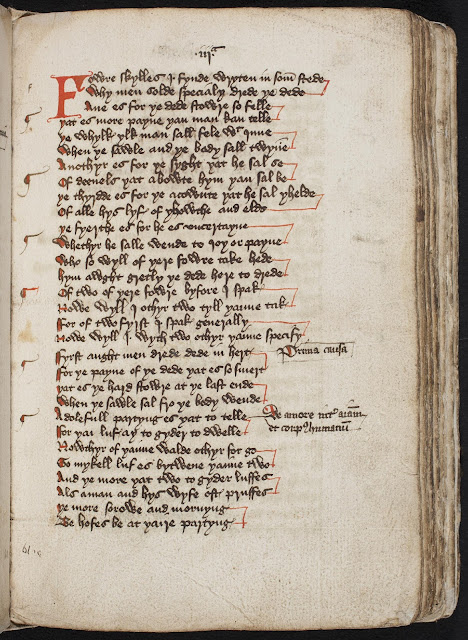 .iij.
Fowre skylles I fynde wryten in som stede
Why men solde specialy drede ye dede
Ane es for ye dede stowre so felle
yat es more payne yan man kan telle
ye whylk ylk man sall fele wt inne
When ye sawle and ye body sall twynne
Anothyr es for ye syght yat he sal se
Of deuels yat abowte hym yan sal be
ye thyrdde es for ye acownte yat he sal yhelde
Of alle hys lyf of yhowthe and elde
ye fyerthe es for he es vncertayne
Whethyr he salle wende to ioy or payne
Who so wyll of yere fowre take hede
hym awght gretly ye dede here to drede
Of two of yere fowre byfore I spak
Nowe wyll I othyr two tyll yanne tak
For of two fyrst I spak generally
Nowe wyll I wych two othyr yanne specyfy
Fyrst aught men drede dede in hert
Prima causa
For ye payne of ye dede yat es so smert
yat es ye hard stowre at ye last ende
When ye sawle sal fro ye body wende
A dolefull partyng es yat to telle
De amore int aiam
et corpus humanum
For yai luf ay to gyder to dwelle
Nowthyr of yanne walde othyr for go
So mykell luf es bytwene yanne two
And ye more yat two to gyder luffes
Als a man and hys wyfe oft pruffes
ye more sorowe and mornyng
Be hofes be at yaire partyng